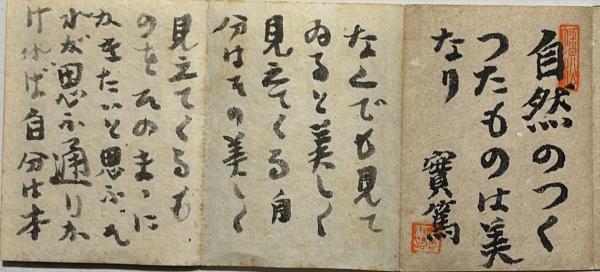 自然のつく
つたものは美
なり
實篤
なんでも見て
ゐると美しく
見えてくる自
分はその美しく
見えてくるも
のをそのまゝに
かきたいと思ふ、そ
れが思ふ通りか
ければ自分は本